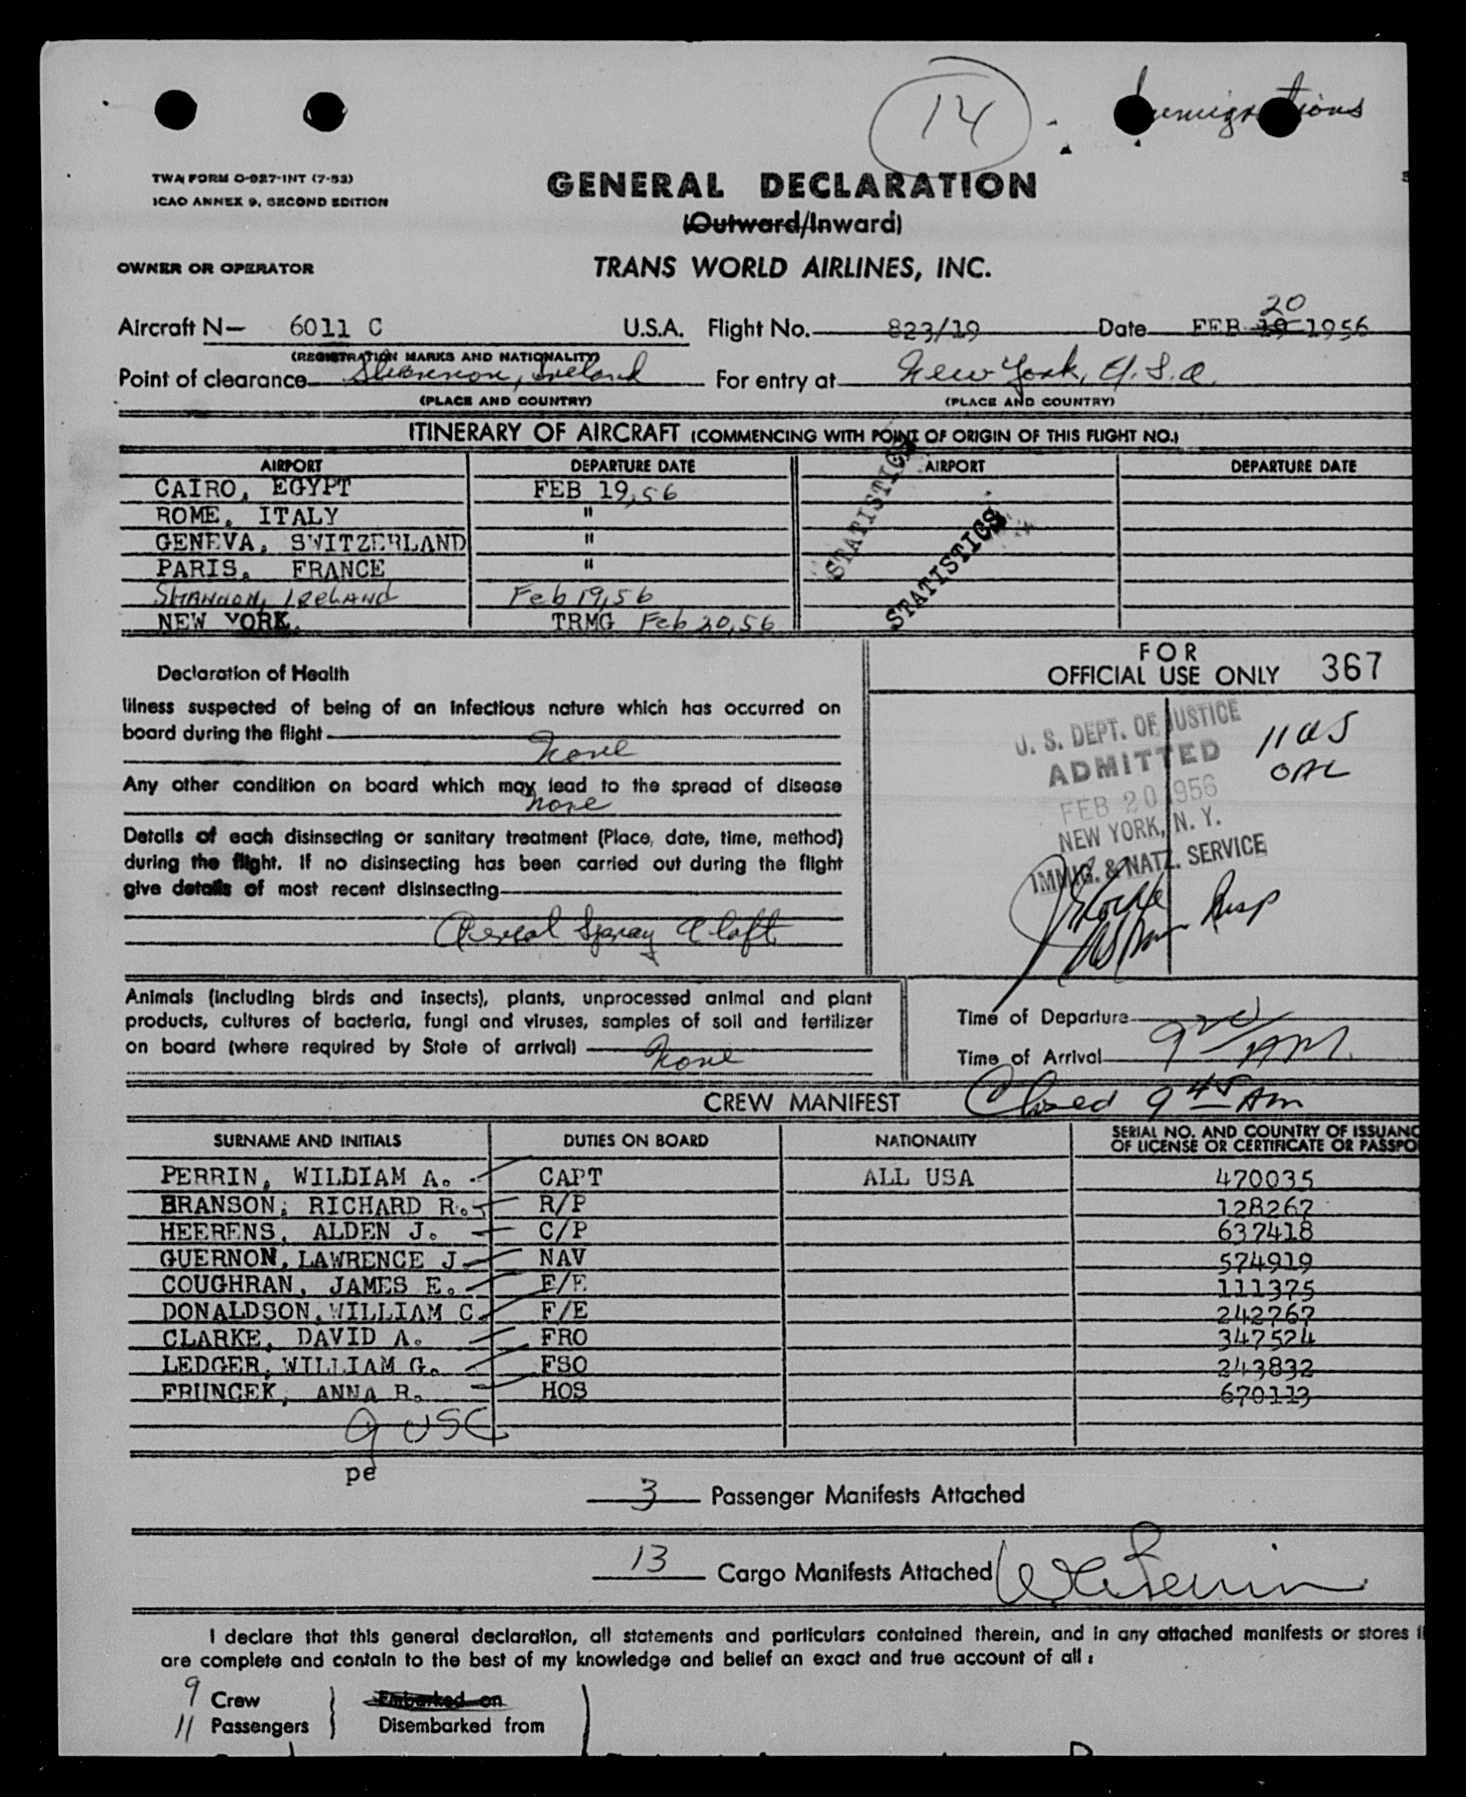 14
Immigrations
TWA FORM O-927-INT (7-53)
ICAO ANNEX 9, SECOND EDITION
GENERAL DECLARATION
(Outward/Inward)
OWNER OR OPERATOR
TRANS WORLD AIRLINES, INC.
20
Aircraft N- 6011 C U.S.A. Flight No. 823/19 Date FEB 19 1956
(REGISTRATION MARKS AND NATIONALITY)
Point of clearance Shannon, Ireland For entry at New York, U.S.A.
(PLACE AND COUNTRY) (PLACE AND COUNTRY)
ITINERARY OF AIRCRAFT (COMMENCING WITH POINT OF ORIGIN OF THIS FLIGHT NO.)
AIRPORT DEPARTURE DATE AIRPORT DEPARTURE DATE
CAIRO, EGYPT FEB 19,56
ROME, ITALY "
GENEVA, SWITZERLAND "
PARIS, FRANCE "
SHANNON, IRELAND Feb 19,56
NEW YORK. TRMG Feb 20,56
STATISTICS
STATISTICS
FOR
OFFICIAL USE ONLY 367
Declaration of Health
Illness suspected of being of an infectious nature which has occurred on
board during the flight
None
Any other condition on board which may lead to the spread of disease
none
Details of each disinsecting or sanitary treatment (Place, date, time, method)
during the flight. If no disinsecting has been carried out during the flight
give details of most recent disinsecting
Aerosol Spray Aloft
U. S. DEPT. OF JUSTICE
ADMITTED
FEB 20 1956
NEW YORK, N. Y.
IMMIG. & NATZ. SERVICE
Insp
Animals (including birds and insects), plants, unprocessed animal and plant
products, cultures of bacteria, fungi and viruses, samples of soil and fertilizer
on board (where required by State of arrival)
None
Time of Departure
Time of Arrival 9 AM
Closed 9 45 AM
CREW MANIFEST
SURNAME AND INITIALS DUTIES ON BOARD NATIONALITY SERIAL NO. AND COUNTRY OF ISSUANC
OF LICENSE OR CERTIFICATE OR PASSPO
PERRIN, WILDIAM A. CAPT ALL USA 470035
BRANSON, RICHARD R. R/P 128267
HEERENS, ALDEN J. C/P 637418
GUERNON, LAWRENCE J. NAV 574919
COUGHRAN, JAMES E. F/E 111375
DONALDSON, WILLIAM C. F/E 242767
CLARKE, DAVID A. FRO 347524
LEDGER, WILLIAM G. FSO 243832
FRUNCEK, ANNA R. HOS 670113
9 USC
pe
3 Passenger Manifests Attached
13 Cargo Manifests Attached
W A Perrin
I declare that this general declaration, all statements and particulars contained therein, and in any attached manifests or stores
are complete and contain to the best of my knowledge and belief an exact and true account of all :
9 Crew Embarked on
11 Passengers Disembarked from